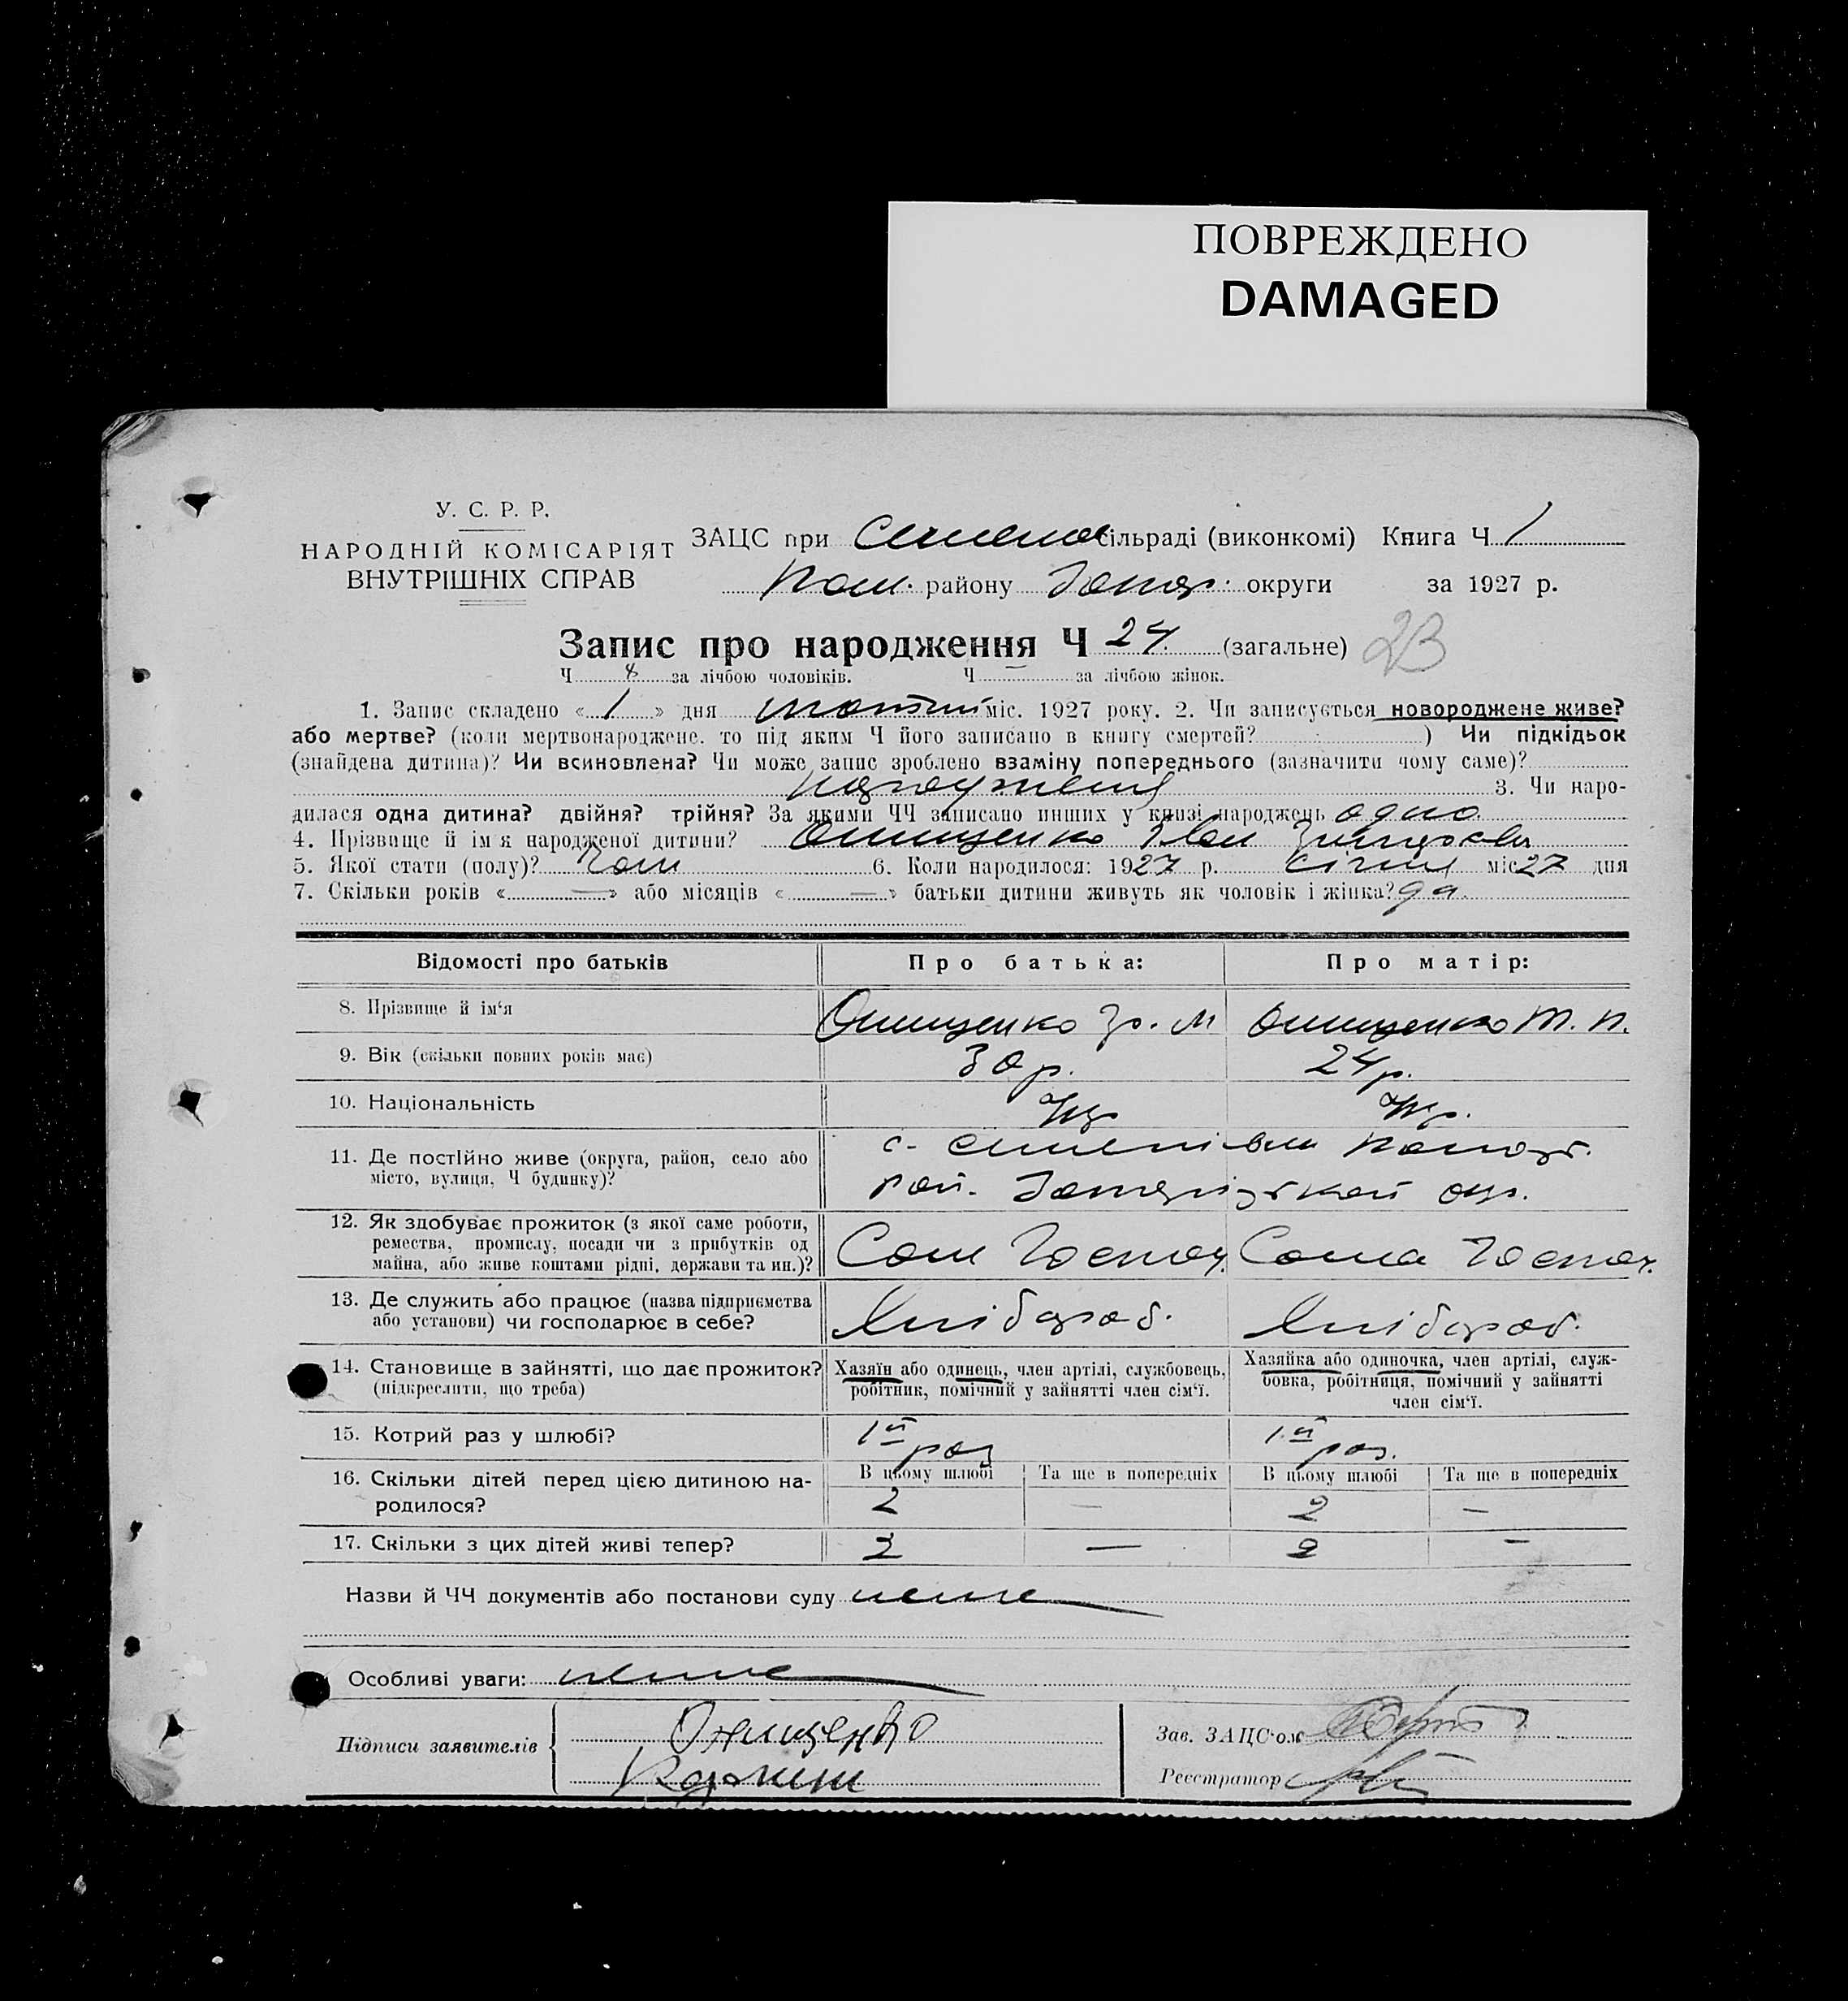 ПОВРЕЖДЕНО
DAMAGED
У. С. Р. Р.
НАРОДНІЙ КОМІСАРІЯТ
ВНУТРІШНІХ СПРАВ
ЗАЦС при сільраді (виконкомі) Книга Ч 1
району округи за 1927 р.
Запис про народження Ч 24 (загальне) 23
Ч за лічбою чоловіків. Ч — за лічбою жінок.
1. Запис складено « 1 » дня міс. 1927 року. 2. Чи записується новороджене живе?
або мертве? (коли мертвонароджене. то під яким Ч його записано в книгу смертей? ) Чи підкідьок
(знайдена дитина)? Чи всиновлена? Чи може запис зроблено взаміну попереднього (зазначити чому саме)?
3. Чи наро-
дилася одна дитина? двійня? трійня? За якими ЧЧ записано инших у книзі народжень одно
4. Прізвище й ім'я народженої дитини? Онищенко Іван
5. Якої стати (полу)? Чол 6. Коли народилося: 1927 р. січня міс 27 дня
7. Скільки років « — » або місяців « — » батьки дитини живуть як чоловік і жінка?
Відомості про батьків Про батька: Про матір:
8. Прізвище й ім'я Онищенко Гр. М Онищенко М. П.
9. Вік (скільки повних років має) 30 р. 24 р.
10. Національність Укр Укр.
11. Де постійно живе (округа, район, село або
місто, вулиця, Ч будинку)?
с.
рай. Запорізької окр.
12. Як здобуває прожиток (з якої саме роботи,
ремества, промислу, посади чи з прибутків од
майна, або живе коштами рідні, держави та ин.)?
Сам Господ. Сама Господ.
13. Де служить або працює (назва підприємства
або установи) чи господарює в себе?
Хлібороб. Хлібороб.
14. Становище в зайнятті, що дає прожиток?
(підкреслити, що треба)
Хазяїн або одинець, член артілі, службовець,
робітник, помічний у зайнятті член сім'ї.
Хазяйка або одиночка, член артілі, служ-
бовка, робітниця, помічний у зайнятті
член сім'ї.
15. Котрий раз у шлюбі? 1й раз 1й раз.
16. Скільки дітей перед цією дитиною на-
родилося?
В цьому шлюбі Та ще в попередніх В цьому шлюбі Та ще в попередніх
2 — 2 —
17. Скільки з цих дітей живі тепер? 2 — 2 —
Назви й ЧЧ документів або постанови суду нема
Особливі уваги: нема
Підписи заявителів Онищенко
Зав. ЗАЦС'ом
Реєстратор